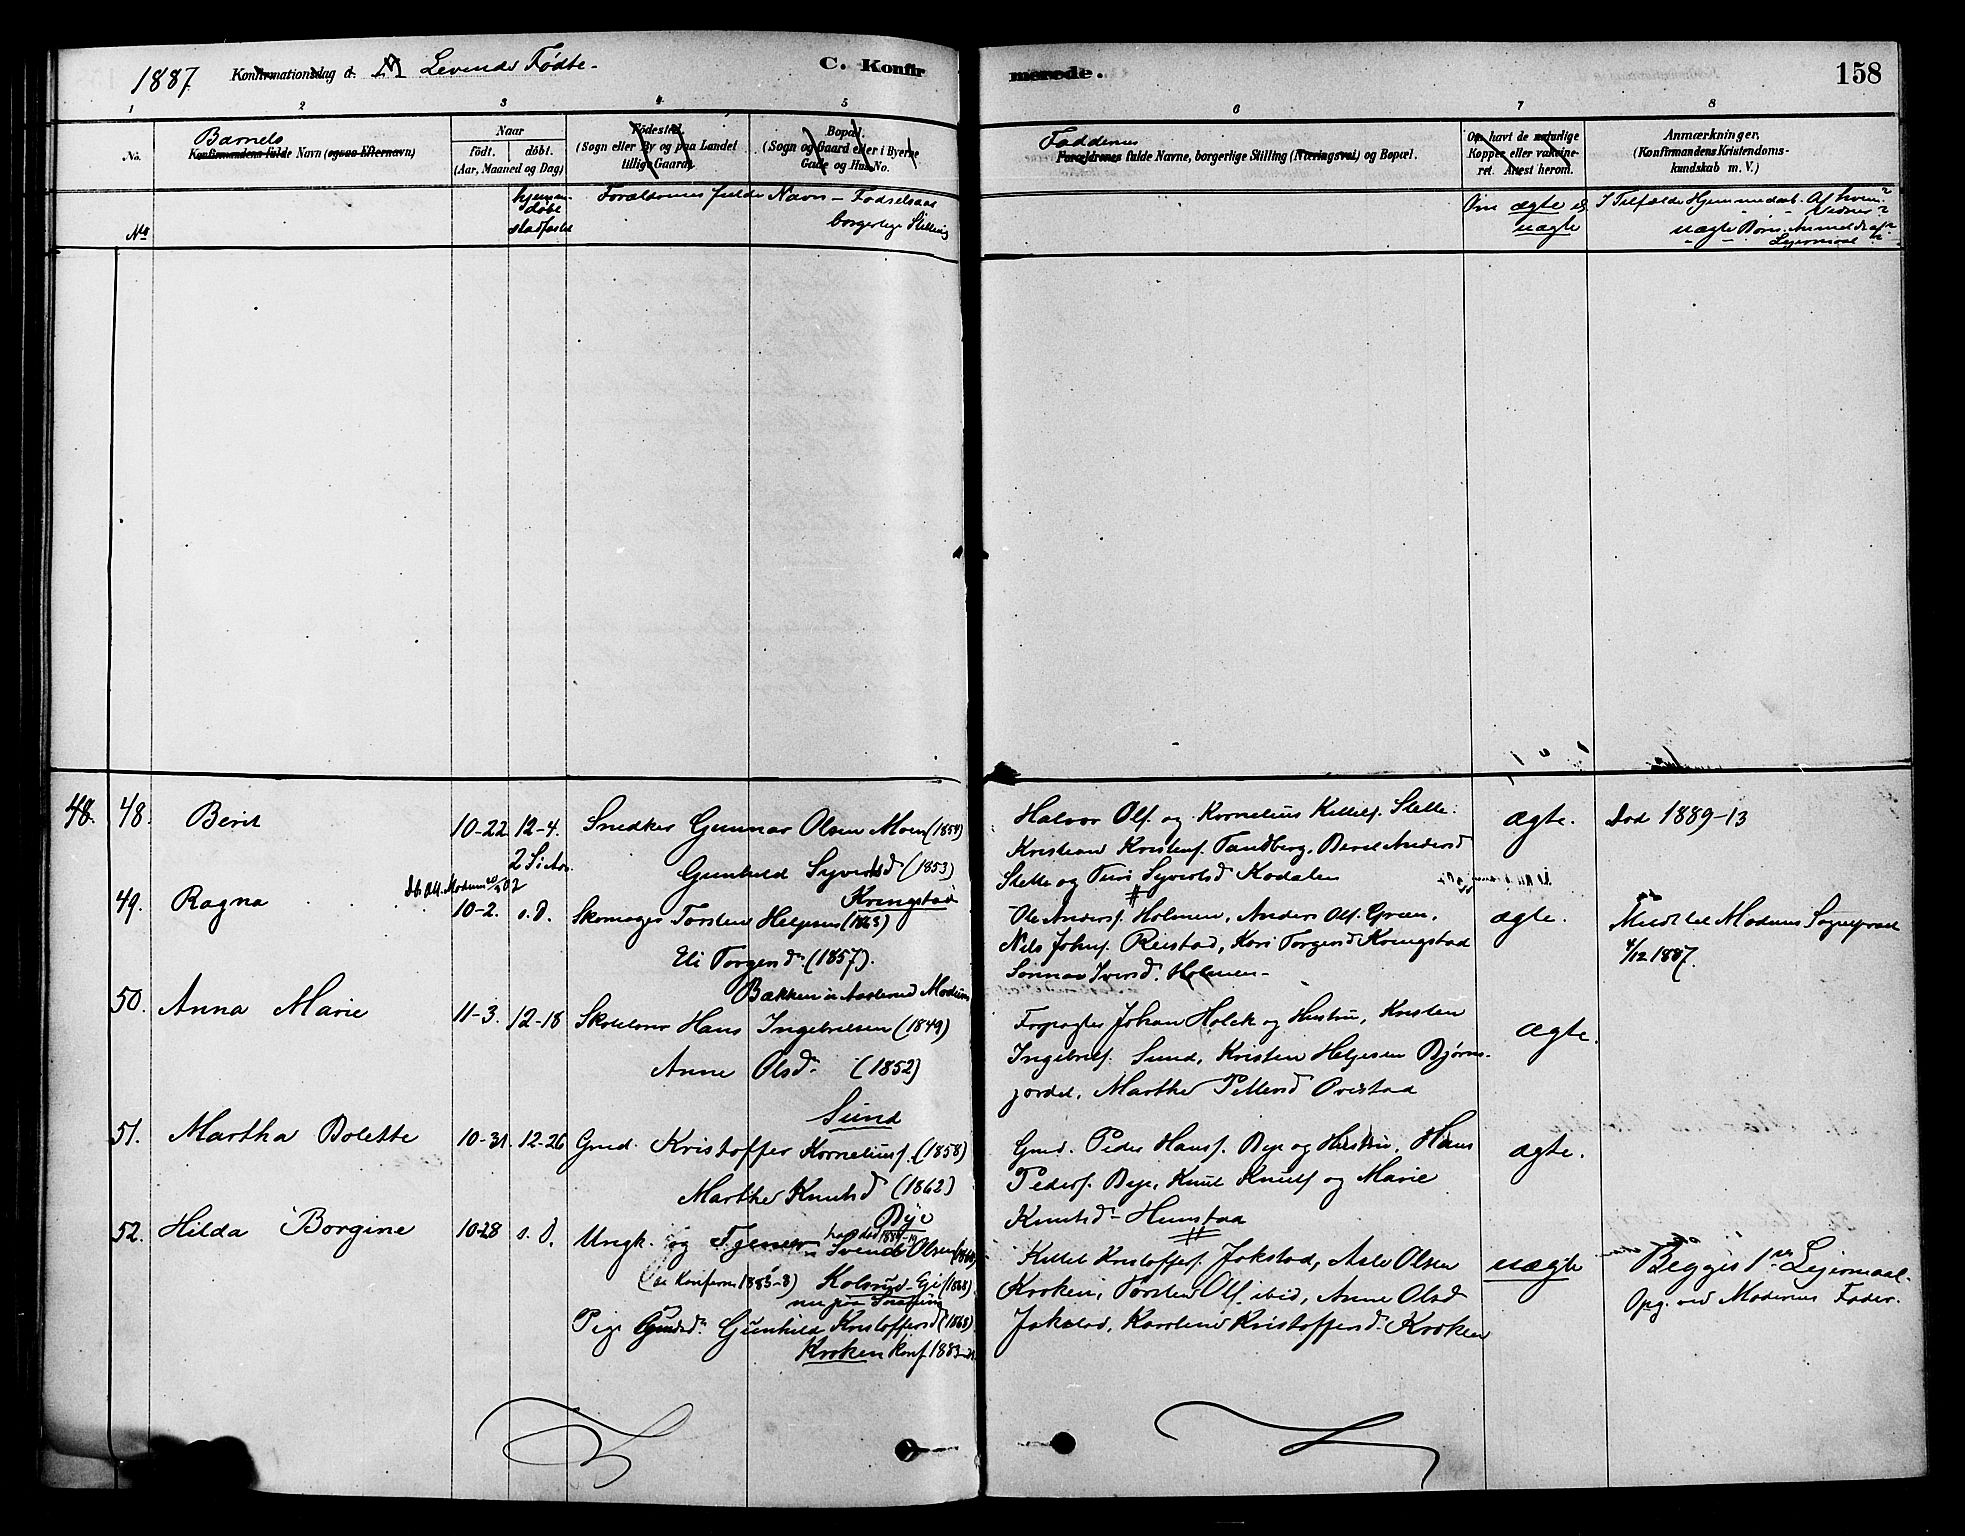 1887 Konfirmationsdag d. Levende Fødte.
C. Konfirmerede.
158
1 2 3 4 5 6 7 8
No.
Barnets
Konfirmandens fulde Navn (ogsaa Efternavn)
Naar
födt. döbt.
(Aar, Maaned og Dag)
Födested.
(Sogn eller By og paa Landet
tillige Gaard)
Bopæl.
(Sogn og Gaard eller i Byerne
Gade og Hus No.
Faddernes
Forældrenes fulde Navne, borgerlige Stilling (Næringsvei) og Bopæl.
Om havt de naturlige
Kopper eller vakcine-
ret. Attest herom.
Anmærkninger,
(Konfirmandens Kristendoms-
kundskab m. V.)
No
hjemme-
døbt
stadfæstet
Forældrenes fulde Navn - Fødselsaar
borgerlige Stilling
Om ægte el.
uægte
I Tilfælde Hjemmedaab. Af hvem?
uægte Børn. Anmeldt af?
Leiermaal
48. 48. Berit 10-22 12-4. Snedker Gunnar Olsen Moen (1854)
Gunhild Syvertsd (1853)
Halvor Ols. og Kornelius Kittels. Slette.
Kristian Kristens. Tandberg, Berit Andersd
Slette og Turi Syvertsd Kodalen
ægte. Død 1889-13
49. Ragna 10-2. s. D. Skomager Torsten Helgesen (1863)
Kringstad
Eli Torgersd. (1857).
Ole Anders. Holmen, Anders Ols. Green,
Nils Johns. Reistad, Kari Torgersd Kringstad
Iversd. Holmen-
ægte. Medd til Modums Sognepræst
4/12 1887.
50. Anna Marie 11-3. 12-18 Hans Ingebretsen (1849)
Bækken Modum
Anne Olsd. (1852)
Forpagter Johan Holck og Hustru, Kristen
Ingebrets. Sund, Kristen Helgesen Bjørns-
jordet, Marthe Pettersd Overstad
ægte.
51. Martha Bolette 10-31. 12-26 Gmd. Kristoffer Kornelius. (1858)
Sund
Marthe Knutsd (1862)
Gmd. Peder Hans. Bye og Hustru, Hans
Peders. Bye, Knut Knuts og Marie
Knutsd- Hunstad
ægte.
52. Hilda Borgine 10-28 s. D. Ungk. og Tjener Svend Olsen
Bye
(se Konferm 1883-8) Kolsrud-Eje (1868)
nu paa
Pige Gunhild Kristoffersd (1868)
Kroken Konf. 1883-
Kittel Kristoffers. Jokstad, Asle Olsen
Kroken, Torsten Ols. ibid, Anne Olsd
Jokstad, Karoline Kristoffersd. Kroken
uægte Begges 1ste Leiermaal.
Opg. ved Moderens Fader.